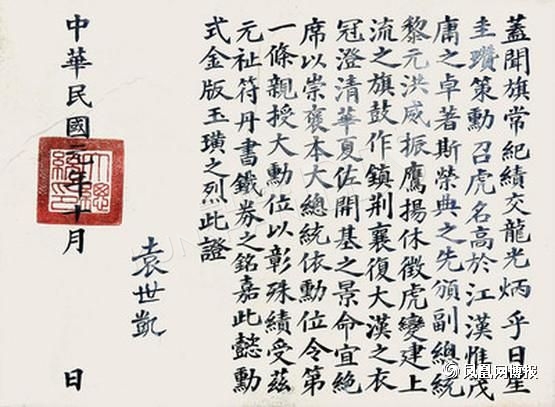 蓋聞旗常紀績交龍光炳乎日星
圭瓚策勳召虎名高於江漢惟茂
庸之卓著斯榮典之先頒副總統
黎元洪威振鷹揚休徵虎變建上
流之旗鼓作鎮荆襄復大漢之衣
冠澄清華夏佐開基之景命宜絶
席以崇褒本大總統依勳位令第
一條親授大勳位以彰殊績受茲
元祉符丹書鐵券之銘嘉此懿勳
式金版玉璜之烈此證
袁世凱
中華民國元年十月 日
大總統印
凤凰网博报